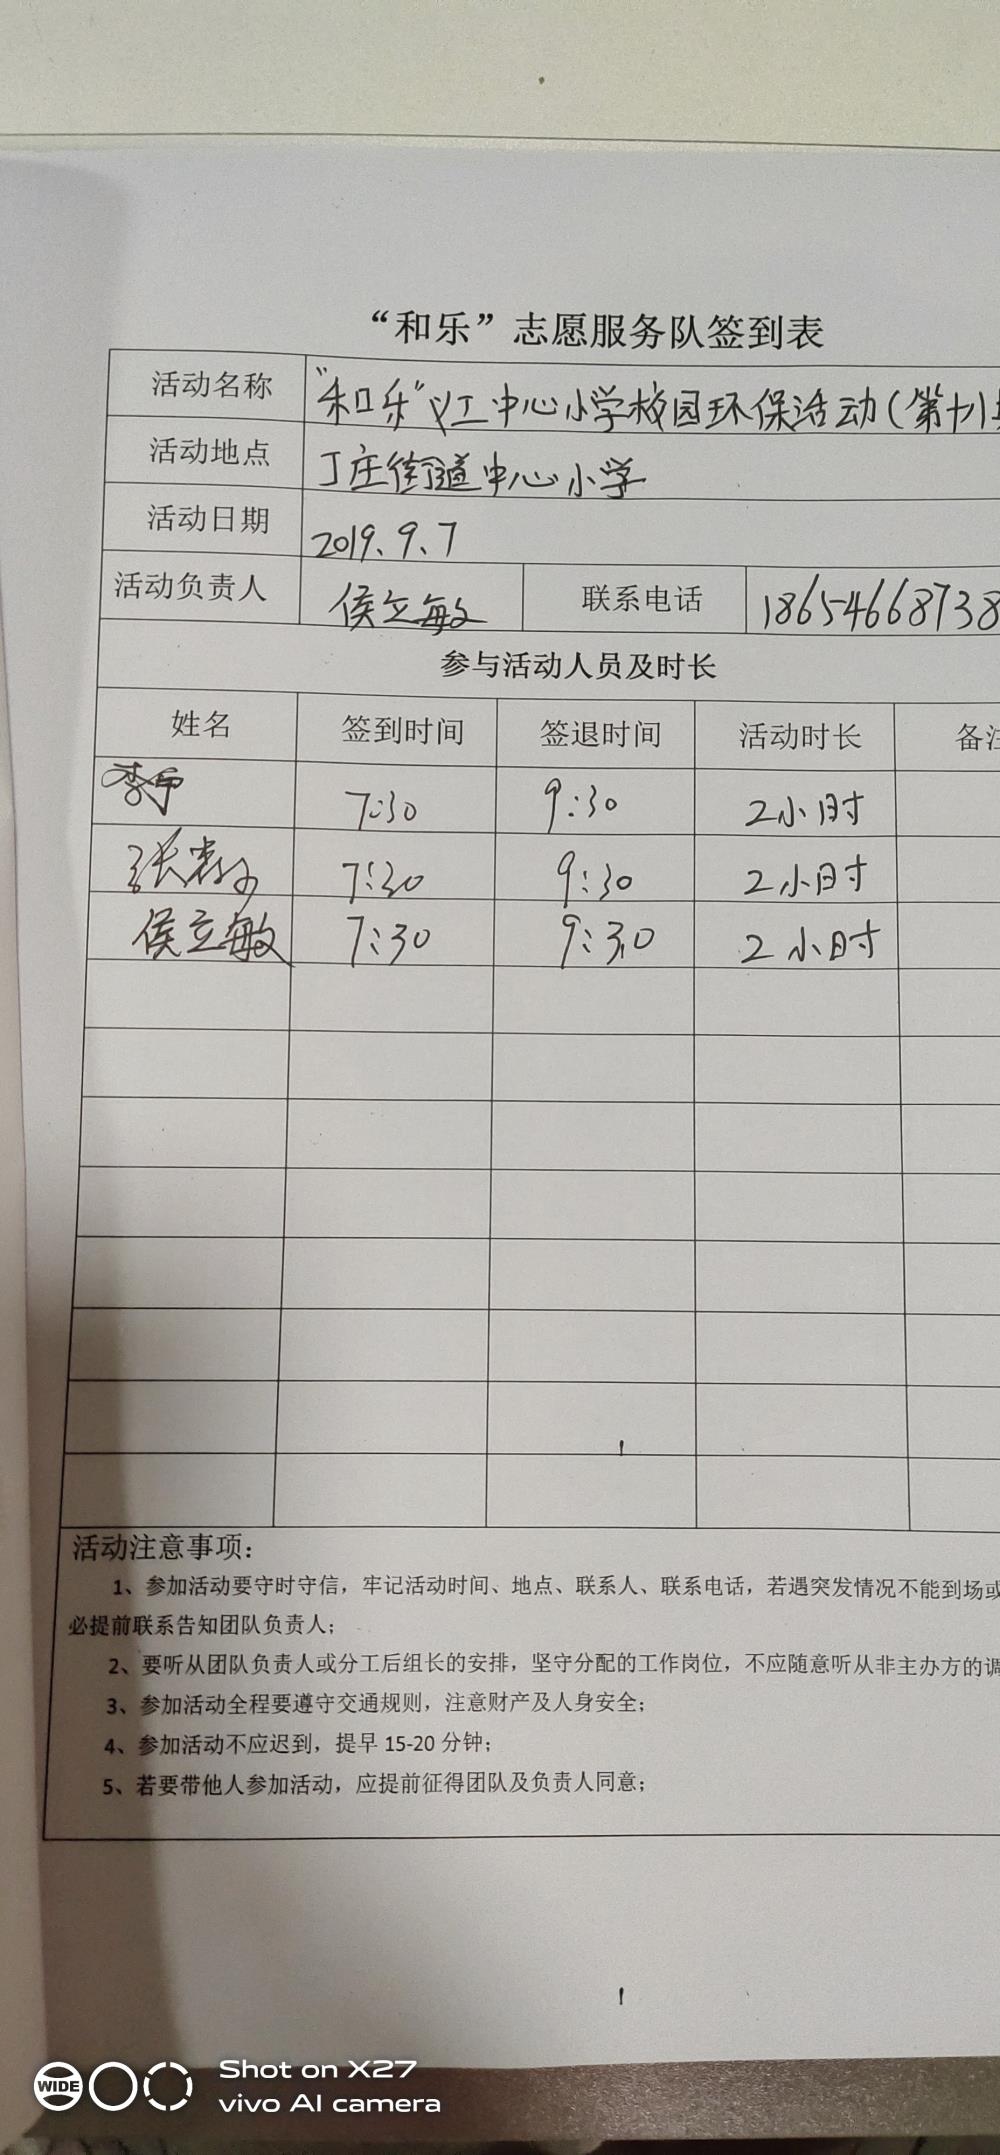 “和乐”志愿服务队签到表
活动名称 “和乐”义工中心小学校园环保活动(第十八
活动地点 丁庄街道中心小学
活动日期 2019.9.7
活动负责人 侯立敏 联系电话 18654668738
参与活动人员及时长
姓名 签到时间 签退时间 活动时长 备注
7:30 9:30 2小时
张 7:30 9:30 2小时
侯立敏 7:30 9:30 2小时
活动注意事项：
1、参加活动要守时守信，牢记活动时间、地点、联系人、联系电话，若遇突发情况不能到场或
必提前联系告知团队负责人；
2、要听从团队负责人或分工后组长的安排，坚守分配的工作岗位，不应随意听从非主办方的调
3、参加活动全程要遵守交通规则，注意财产及人身安全；
4、参加活动不应迟到，提早 15-20 分钟；
5、若要带他人参加活动，应提前征得团队及负责人同意；
WIDE
Shot on X27
vivo AI camera